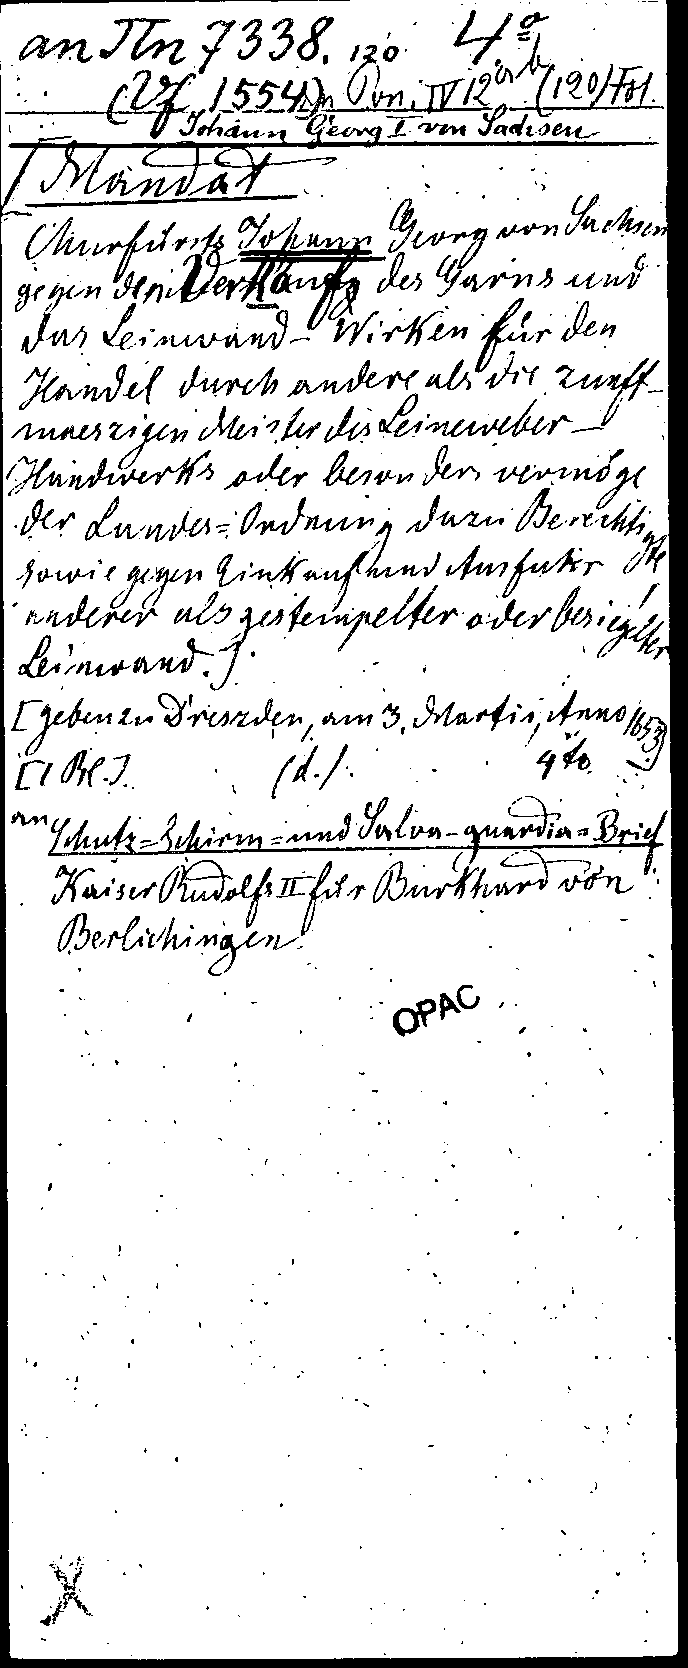 an Tn 7338. 120 4º
(Vf 1554) in Pon. IV 12 a b (120) Fol.
Johann Georg I von Sachsen
[Mandat
Churfürsts Johann Georg von Sachsen
gegen den Verkauf des Garns und
das Leinwand-Wirken für den
Handel durch andere als die zunft-
maeszigen Meister des Leineweber-
Handwerks oder besonders vermöge
der Landes=Ordnung dazu Berechtigte
sowie gegen Einkauf und Ausfuhr
anderer als gestempelter oder besiegelter
Leinwand.]
[geben zu Dreszden, am 3. Martii, Anno 1653]
[1 Bl.]. (d.). 4to.
an Schutz=Schirm=und Salva-guardia=Brief
Kaiser Rudolfs II für Burkhard von
Berlichingen
OPAC
X